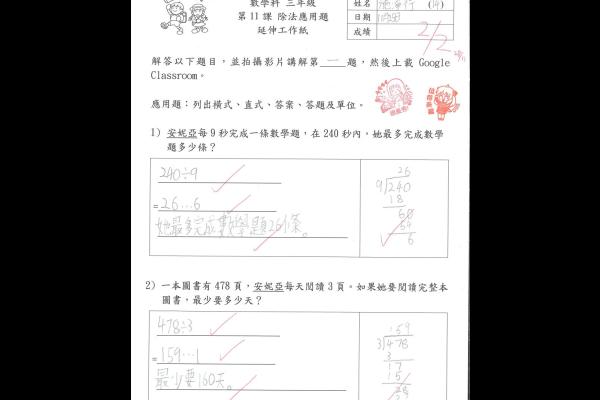 數學科 三年級
第 11 課 除法應用題
延伸工作紙
姓名 (14)
日期
成績 2/2
解答以下題目，並拍攝影片講解第 一 題，然後上載 Google
Classroom。
應用題：列出橫式、直式、答案、答題及單位。
1) 安妮亞每 9 秒完成一條數學題，在 240 秒內，她最多完成數學
題多少條？
240÷9
=26...6
她最多完成數學題26條。
26
9 240
18
60
54
6
2) 一本圖書有 478 頁，安妮亞每天閱讀 3 頁。如果她要閱讀完整本
圖書，最少要多少天？
478÷3
=159...1
最少要160天。
159
3 478
3
17
15
28